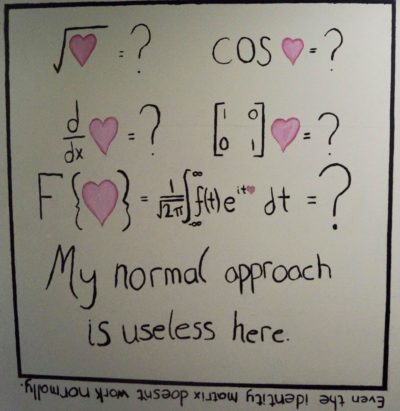 √♥ = ?
COS ♥ = ?
d/dx ♥ = ?
[1 0; 0 1] ♥ = ?
F{♥} = 1/√2π ∫_{-∞}^{∞} f(t) e^{it♥} dt = ?
My normal approach
is useless here.
Even the identity matrix doesnt work normally.